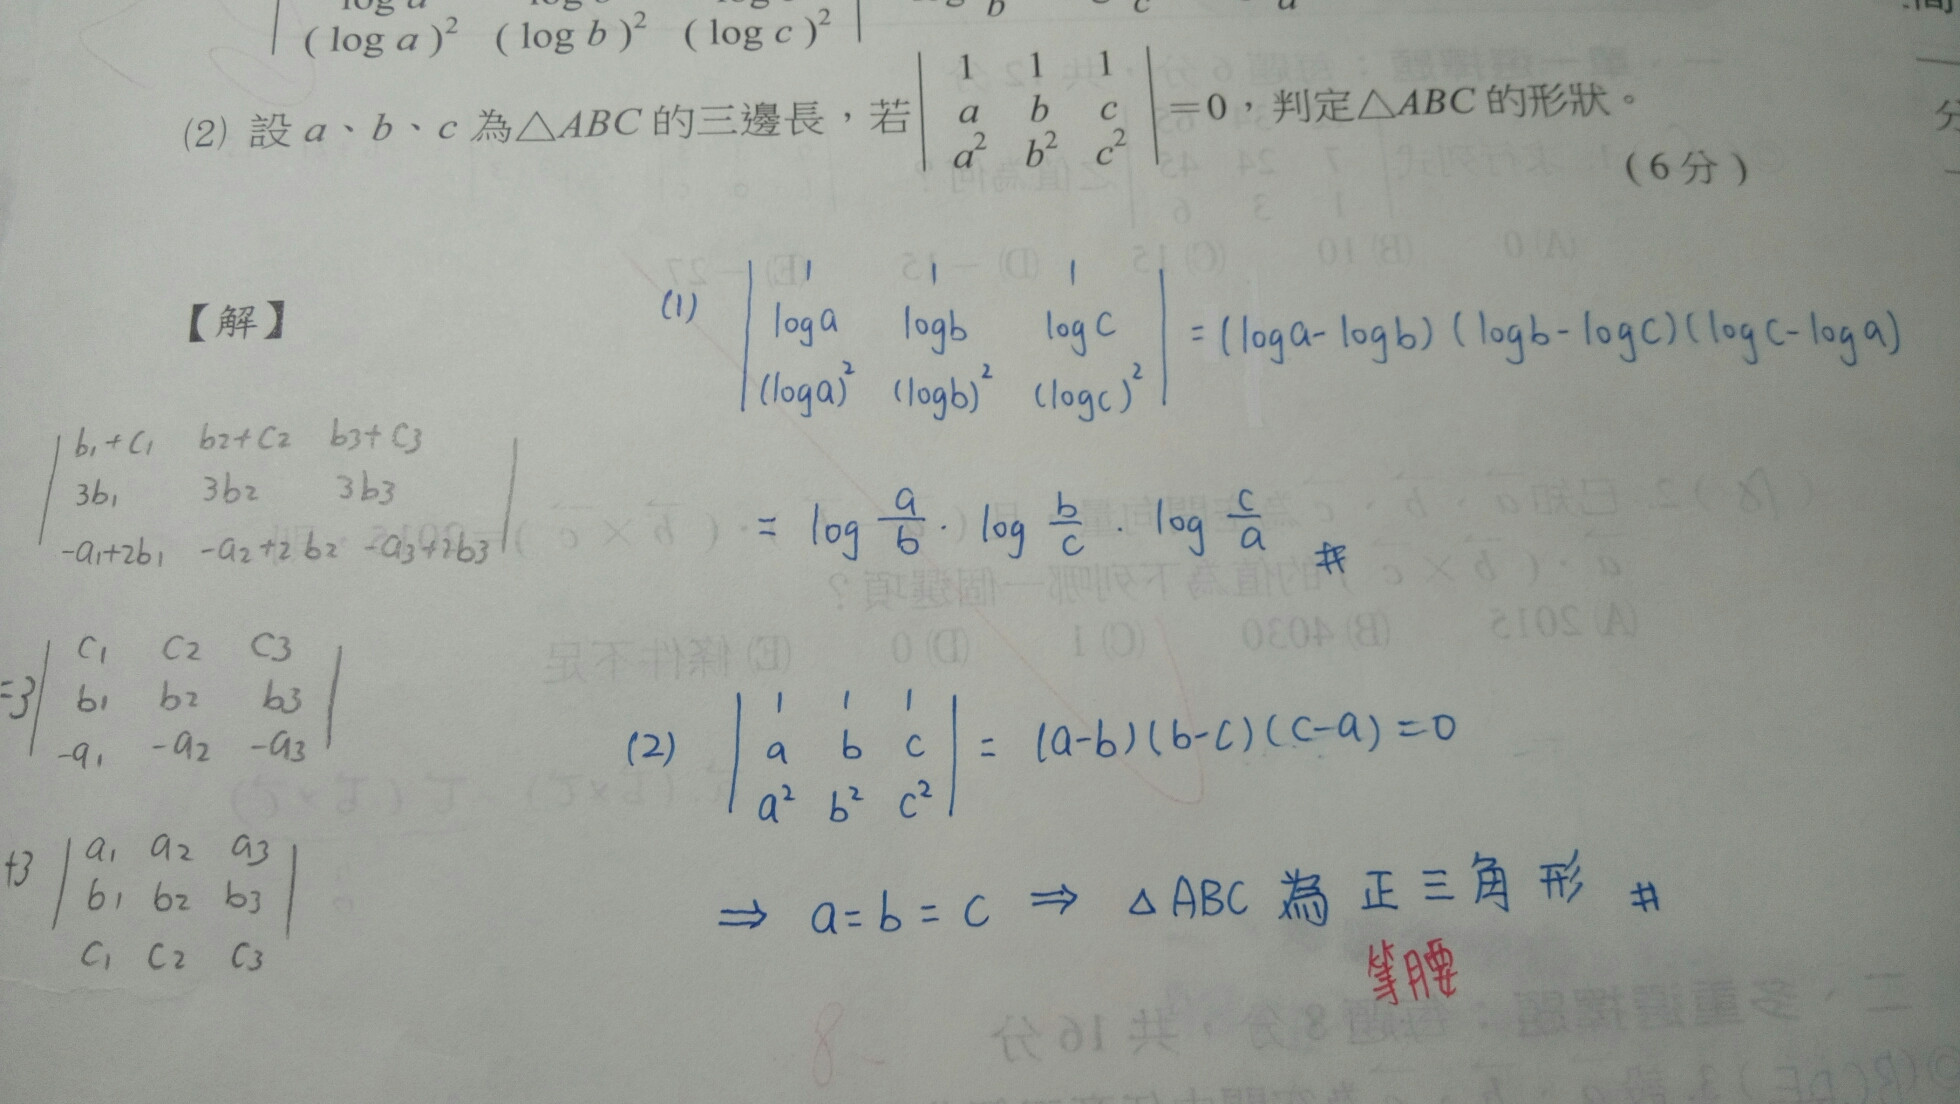 (log a)² (log b)² (log c)²
(2) 設 a、b、c 為△ABC 的三邊長，若
1 1 1
a b c
a² b² c²
=0，判定△ABC 的形狀。
(6分)
【解】
(1)
1 1 1
loga logb logc
(loga)² (logb)² (logc)²
= (loga-logb)(logb-logc)(logc-loga)
= log a/b · log b/c · log c/a #
b₁+c₁ b₂+c₂ b₃+c₃
3b₁ 3b₂ 3b₃
-a₁+2b₁ -a₂+2b₂ -a₃+2b₃
=3
c₁ c₂ c₃
b₁ b₂ b₃
-a₁ -a₂ -a₃
+3
a₁ a₂ a₃
b₁ b₂ b₃
c₁ c₂ c₃
(2)
1 1 1
a b c
a² b² c²
= (a-b)(b-c)(c-a)=0
⇒ a=b=c ⇒ △ABC 為 正三角形 #
等腰